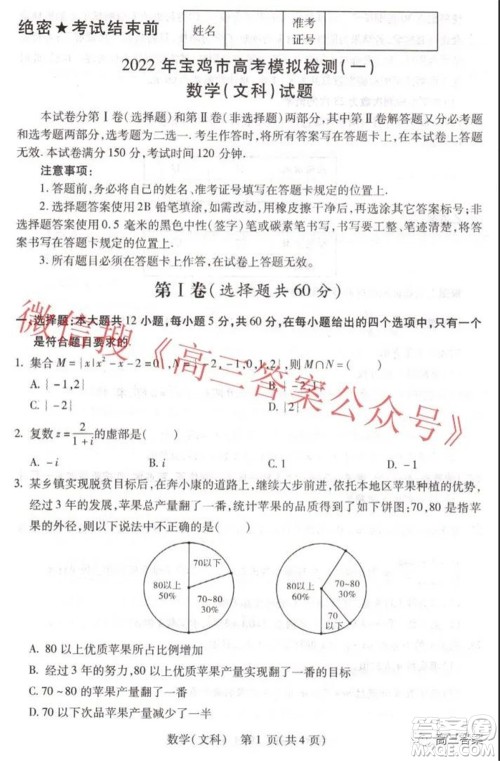 绝密★考试结束前
姓名
准考
证号
2022年宝鸡市高考模拟检测(一)
数学(文科)试题
本试卷分第Ⅰ卷(选择题)和第Ⅱ卷(非选择题)两部分,其中第Ⅱ卷解答题又分必考题
和选考题两部分,选考题为二选一.考生作答时,将所有答案写在答题卡上,在本试卷上答题
无效.本试卷满分150分,考试时间120分钟.
注意事项:
1.答题前,务必将自己的姓名、准考证号填写在答题卡规定的位置上.
2.选择题答案使用2B铅笔填涂,如需改动,用橡皮擦干净后,再选涂其它答案标号;非
选择题答案使用0.5毫米的黑色中性(签字)笔或碳素笔书写,字体工整、笔迹清楚,将答
案书写在答题卡规定的位置上.
3.所有题目必须在答题卡上作答,在试卷上答题无效.
第Ⅰ卷(选择题共60分)
一.选择题:本大题共12小题,每小题5分,共60分,在每小题给出的四个选项中,只有一个
是符合题目要求的.
1. 集合M={x|x²-x-2=0 -2,-1,0,1,2},则M∩N=( )
A.{-1,2}
C.{-2}
D.{2}
2. 复数z=2/(1+i)的虚部是( )
A. -i
B. i
C. 1
D. -1
3. 某乡镇实现脱贫目标后,在奔小康的道路上,继续大步前进,依托本地区苹果种植的优势,
经过3年的发展,苹果总产量翻了一番,统计苹果的品质得到了如下饼图:70,80是指苹
果的外径,则以下说法中不正确的是( )
80以上
50%
70以下
70~80
30%
80以上
60%
70~80
30%
70以下
A. 80以上优质苹果所占比例增加
B. 经过3年的努力,80以上优质苹果产量实现翻了一番的目标
C. 70~80的苹果产量翻了一番
D. 70以下次品苹果产量减少了一半
数学(文科) 第1页(共4页)
微信搜《高三答案公众号》
高三答案